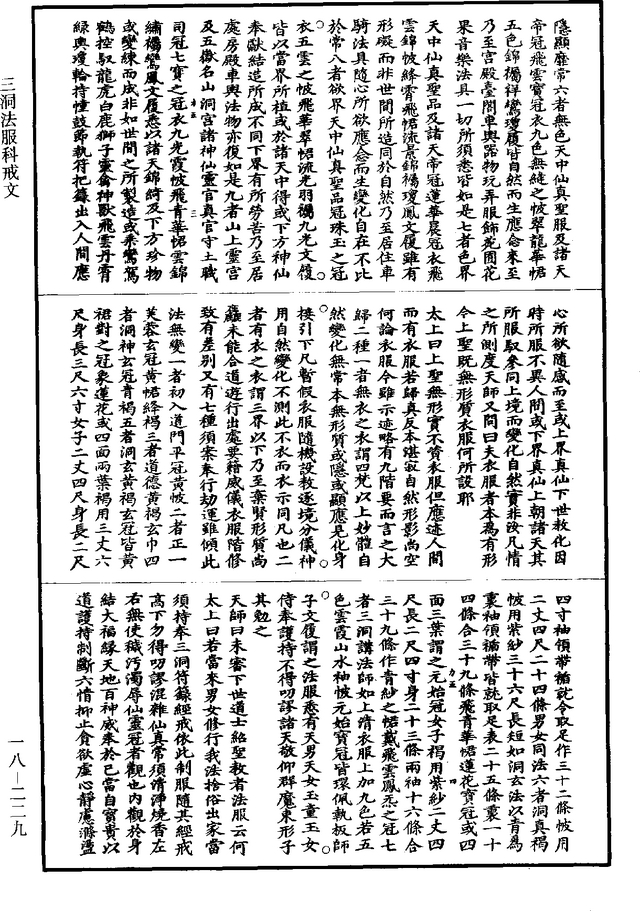 隱顯靡常六者無色天中仙真聖服及諸天
帝冠飛雲寶冠衣九色無縫之帔翠龍華裙
五色錦襦祥鸞瓊履皆自然而生應念來至
乃至宮殿臺閣車輿器物玩弄服飾苑園花
果音樂法具一切所須悉皆如是七者色界
天中仙真聖品及諸天帝冠蓮華晨冠衣飛
雲錦帔絳霄飛裙流景錦襦瓊鳳文履雖有
形礙而非世間所造同於自然乃至居住車
騎法具隨心所欲應念而生變化自在不比
於常八者欲界天中仙真聖品冠珠玉之冠
衣五雲之帔飛華翠裙流光羽襦九光文履
皆以當界所植或於諸天中得或下方神仙
奉獻結造所成不同下界有所勞苦乃至居
處房殿車輿法物亦復如是九者山上靈宮
及五嶽名山洞宮諸神仙靈官真官守土職
司冠七寶之冠衣九光霞帔飛青華裙雲錦
繡襦鸞鳳文履悉以諸天錦綺及下方珍物
或變練而成非如世間之所製造或乘鸞駕
鶴控馭龍虎白鹿獅子靈禽神獸飛雲丹霄
綠輿瓊輪持幢鼓節執符把籙出入人間應
心所欲隨感而至或上界真仙下世教化因
時所服不異人間或下界真仙上朝諸天其
所服馭參同上境而變化自然實非淺凡情
之所測度天師又問曰夫衣服者本為有形
今上聖既無形質衣服何所設耶
太上曰上聖無形實不資衣服但應迹人間
而有衣服若歸真反本湛寂自然形影尚空
何論衣服今雖示迹略有九階要而言之大
歸二種一者無衣之衣謂四梵以上妙體自
然變化無常本無形質或隱或顯應見化身
接引下凡暫假衣服隨機設教逐境分儀神
用自然變化不測此不衣而衣示同凡也二
者有衣之衣謂三界以下乃至棄賢形質尚
麤未能合道遊行出處要藉威儀衣服階修
致有差別又有七種須案奉行劫運雖傾此
法無變一者初入道門平冠黃帔二者正一
芙蓉玄冠黃裙絳褐三者道德黃褐玄巾四
者洞神玄冠青褐五者洞玄黃褐玄冠皆黃
裙對之冠象蓮花或四面兩葉褐用三丈六
尺身長三尺六寸女子二丈四尺身長二尺
四寸袖領帶襵就令取足作三十二條帔用
二丈四尺二十四條男女同法六者洞真褐
帔用紫紗三十六尺長短如洞玄法以青為
裏袖領襵帶皆就取足表二十五條裏一十
四條合三十九條飛青華裙蓮花寶冠或四
面三葉謂之元始冠女子褐用紫紗二丈四
尺長二尺四寸身二十三條兩袖十六條合
三十九條作青紗之裙戴飛雲鳳炁之冠七
者三洞講法師如上清衣服上加九色若五
色雲霞山水袖帔元始寶冠皆環佩執板師
子文履謂之法服悉有天男天女玉童玉女
侍奉護持不得叨謬諸天敬仰群魔束形子
其勉之
天師曰未審下世道士紹聖教者法服云何
太上曰若當來男女修行我法捨俗出家當
須持奉三洞符籙經戒依此制服隨其經戒
高下勿得叨謬混雜仙真常須清淨燒香左
右無使穢污濁辱仙靈冠者觀也內觀於身
結大福緣天地百神咸奉於己當自寶貴以
道護持制斷六情抑止貪欲虛心靜慮滌盪
三洞法服科戒文
一八—二二九